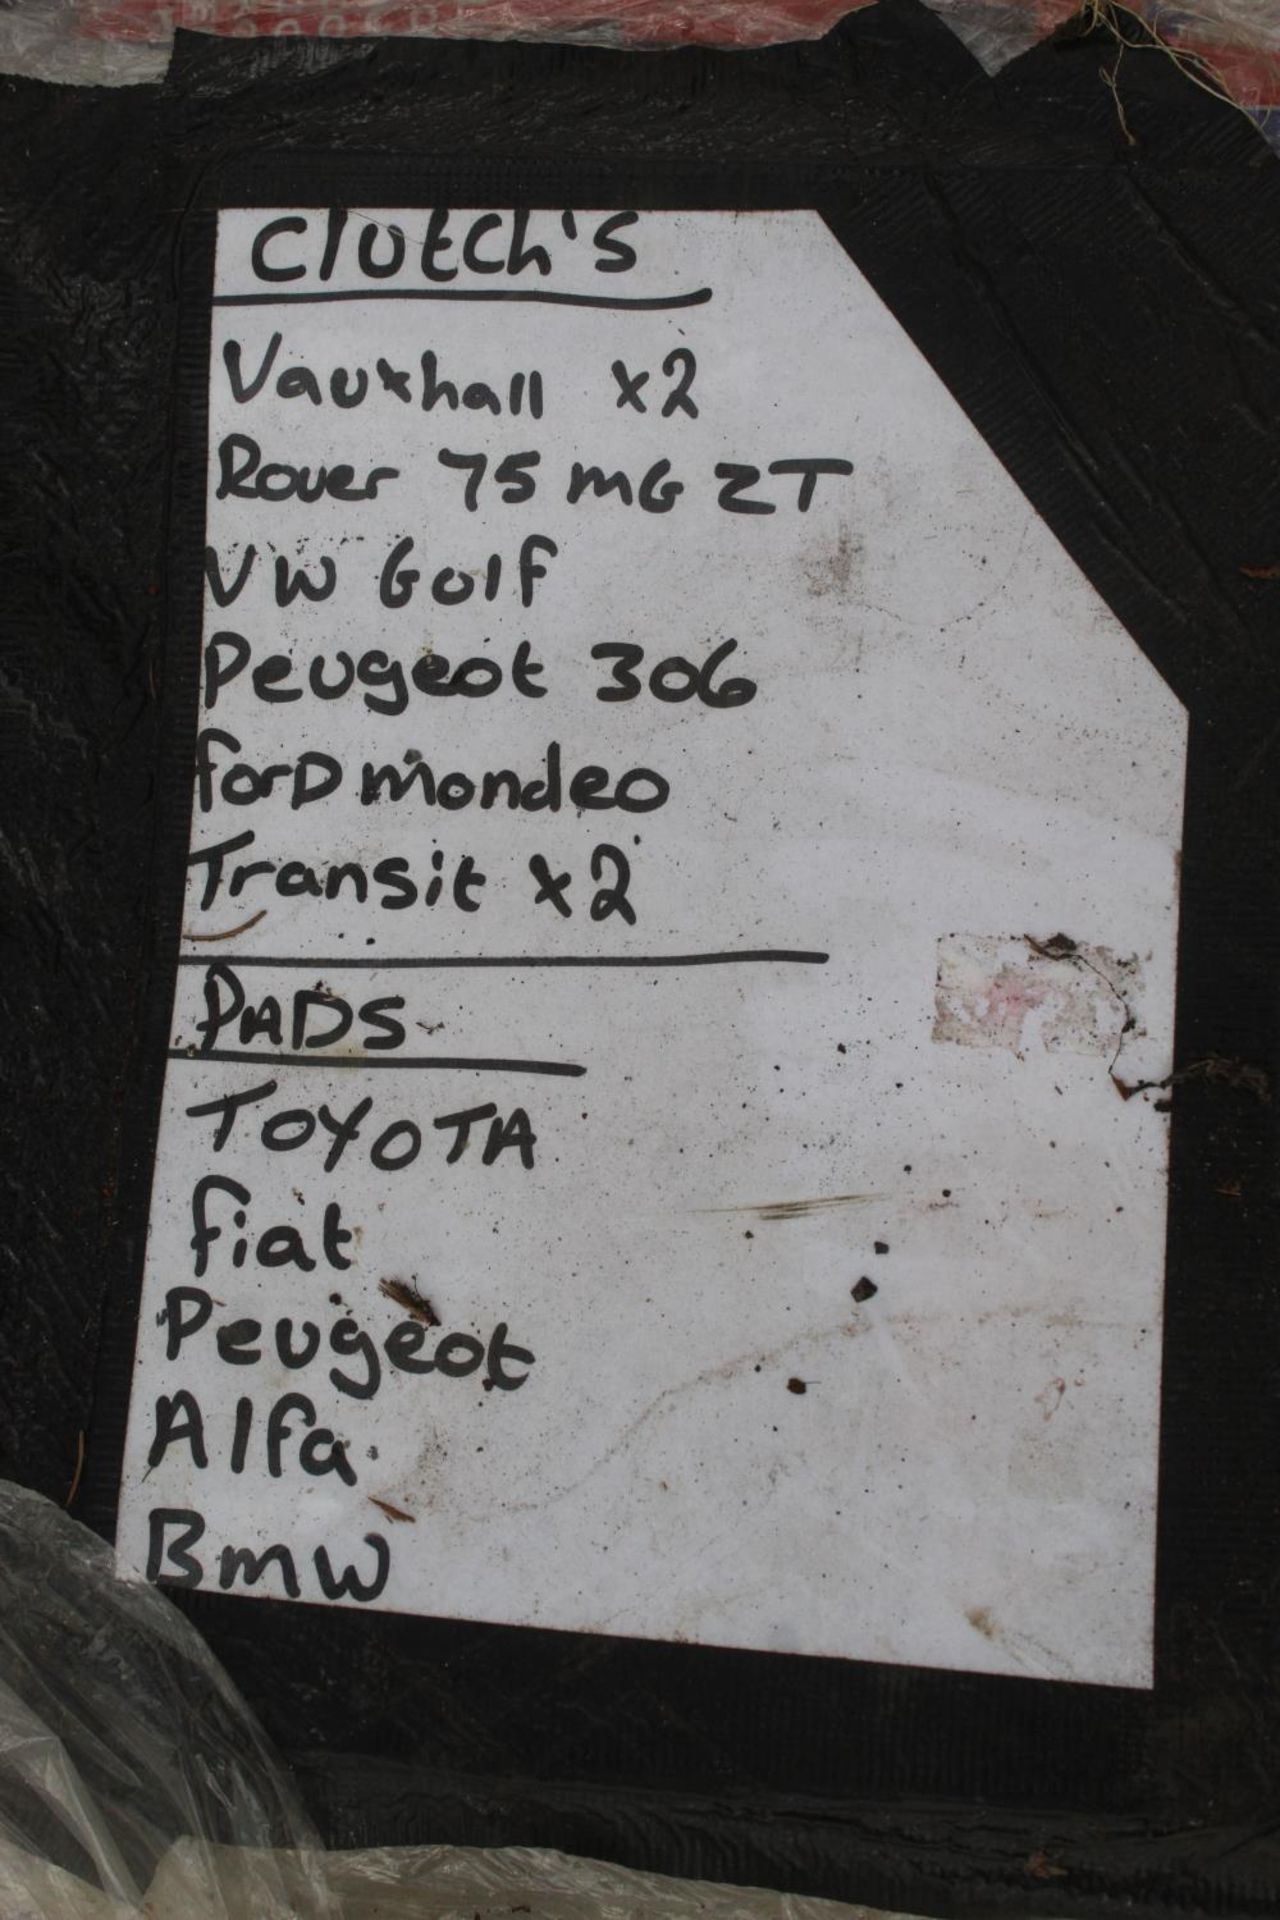 Clutch's
Vauxhall x2
Rover 75 MG ZT
VW Golf
Peugeot 306
forD mondeo
Transit x2
PADS
TOYOTA
fiat
Peugeot
Alfa
BMW